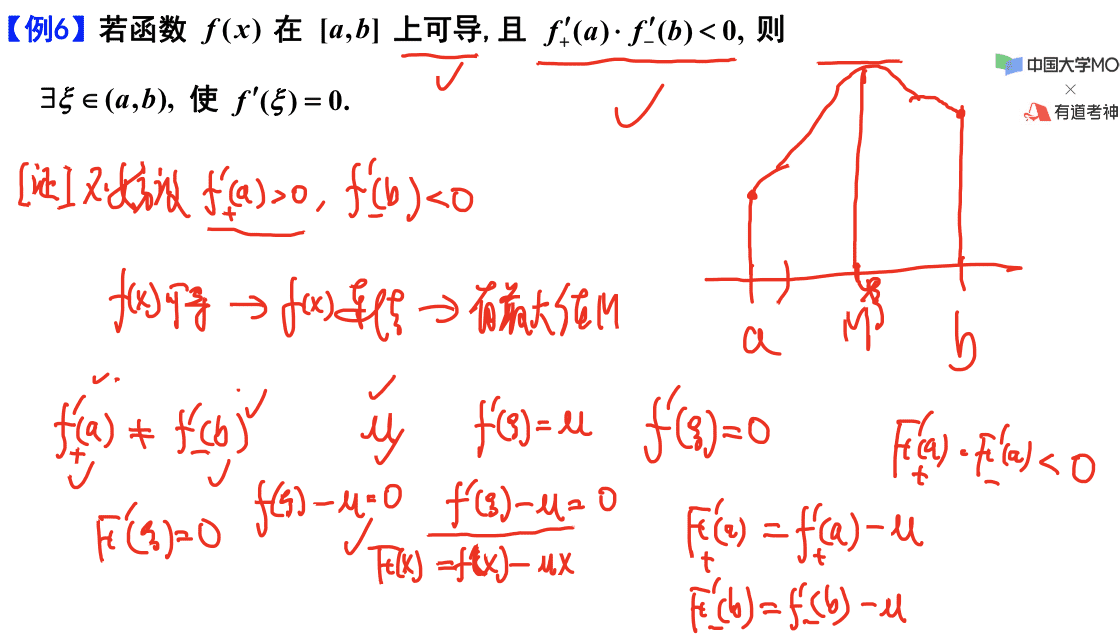 【例6】若函数 f(x) 在 [a,b] 上可导, 且 f'₊(a)·f'₋(b)<0, 则
∃ξ∈(a,b), 使 f'(ξ)=0.
中国大学MO
×
有道考神
[证] 不妨设 f'₊(a)>0, f'₋(b)<0
f(x)可导 → f(x)连续 → 有最大值M
a M ξ b
f'₊(a) ≠ f'₋(b) μ f'(ξ)=μ f'(ξ)=0
F'₊(a)·F'₋(a)<0
F'(ξ)=0 f(ξ)-μ=0 f'(ξ)-μ=0
F(x)=f(x)-μx
F'₊(a)=f'₊(a)-μ
F'₋(b)=f'₋(b)-μ